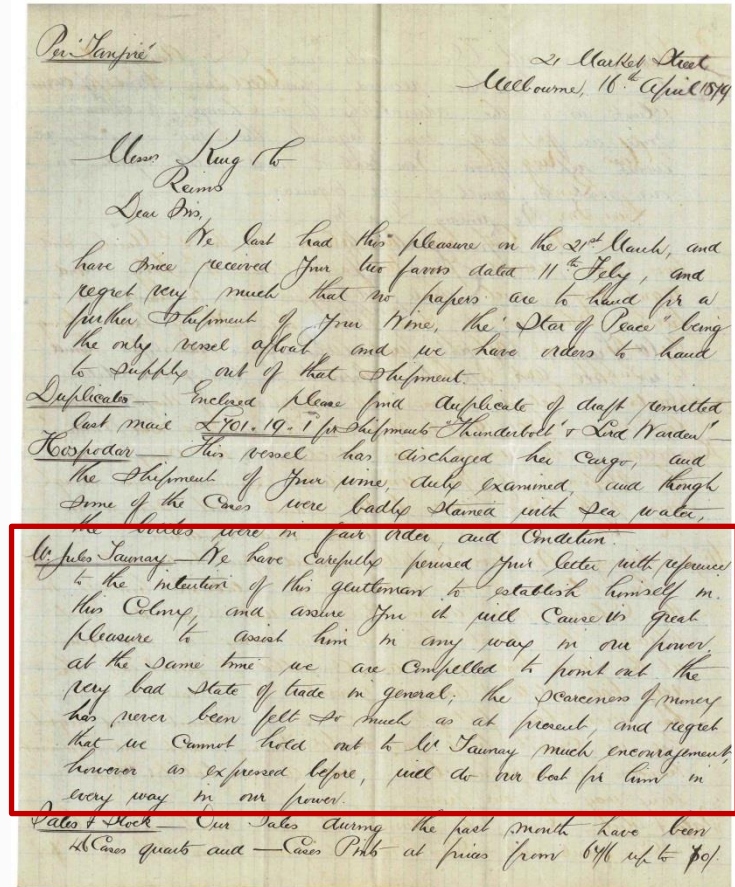 Per "Tanjore"
21 Market Street
Melbourne, 16th April 1879
Messrs King & Co
Reims
Dear Sirs,
We last had this pleasure on the 21st March, and
have since received your two favors dated 11th Feby, and
regret very much that no papers are to hand for a
further shipment of your Wine, the "Star of Peace" being
the only vessel afloat, and we have orders to hand
to supply out of that shipment.
Duplicates — Enclosed please find duplicate of draft remitted
last mail £701.19.1 pr shipments "Thunderbolt" & "Lord Warden" —
Hospodar — This vessel has discharged her Cargo, and
the shipment of your wine, duly examined, and though
some of the Cases were badly stained with Sea water,
the bottles were in fair order, and Condition.
Mr. Jules Taunay — We have carefully perused your letter with reference
to the intention of this gentleman to establish himself in
this Colony, and assure you it will cause us great
pleasure to assist him in any way in our power.
at the same time we are compelled to point out the
very bad state of trade in general; the scarceness of money
has never been felt so much as at present, and regret
that we Cannot hold out to Mr Taunay much encouragement,
however as expressed before, will do our best for him in
every way in our power.
Sales & Stock — Our Sales during the past month have been
46 Cases quarts and — Cases Pints at prices from 67/6 up to 70/.